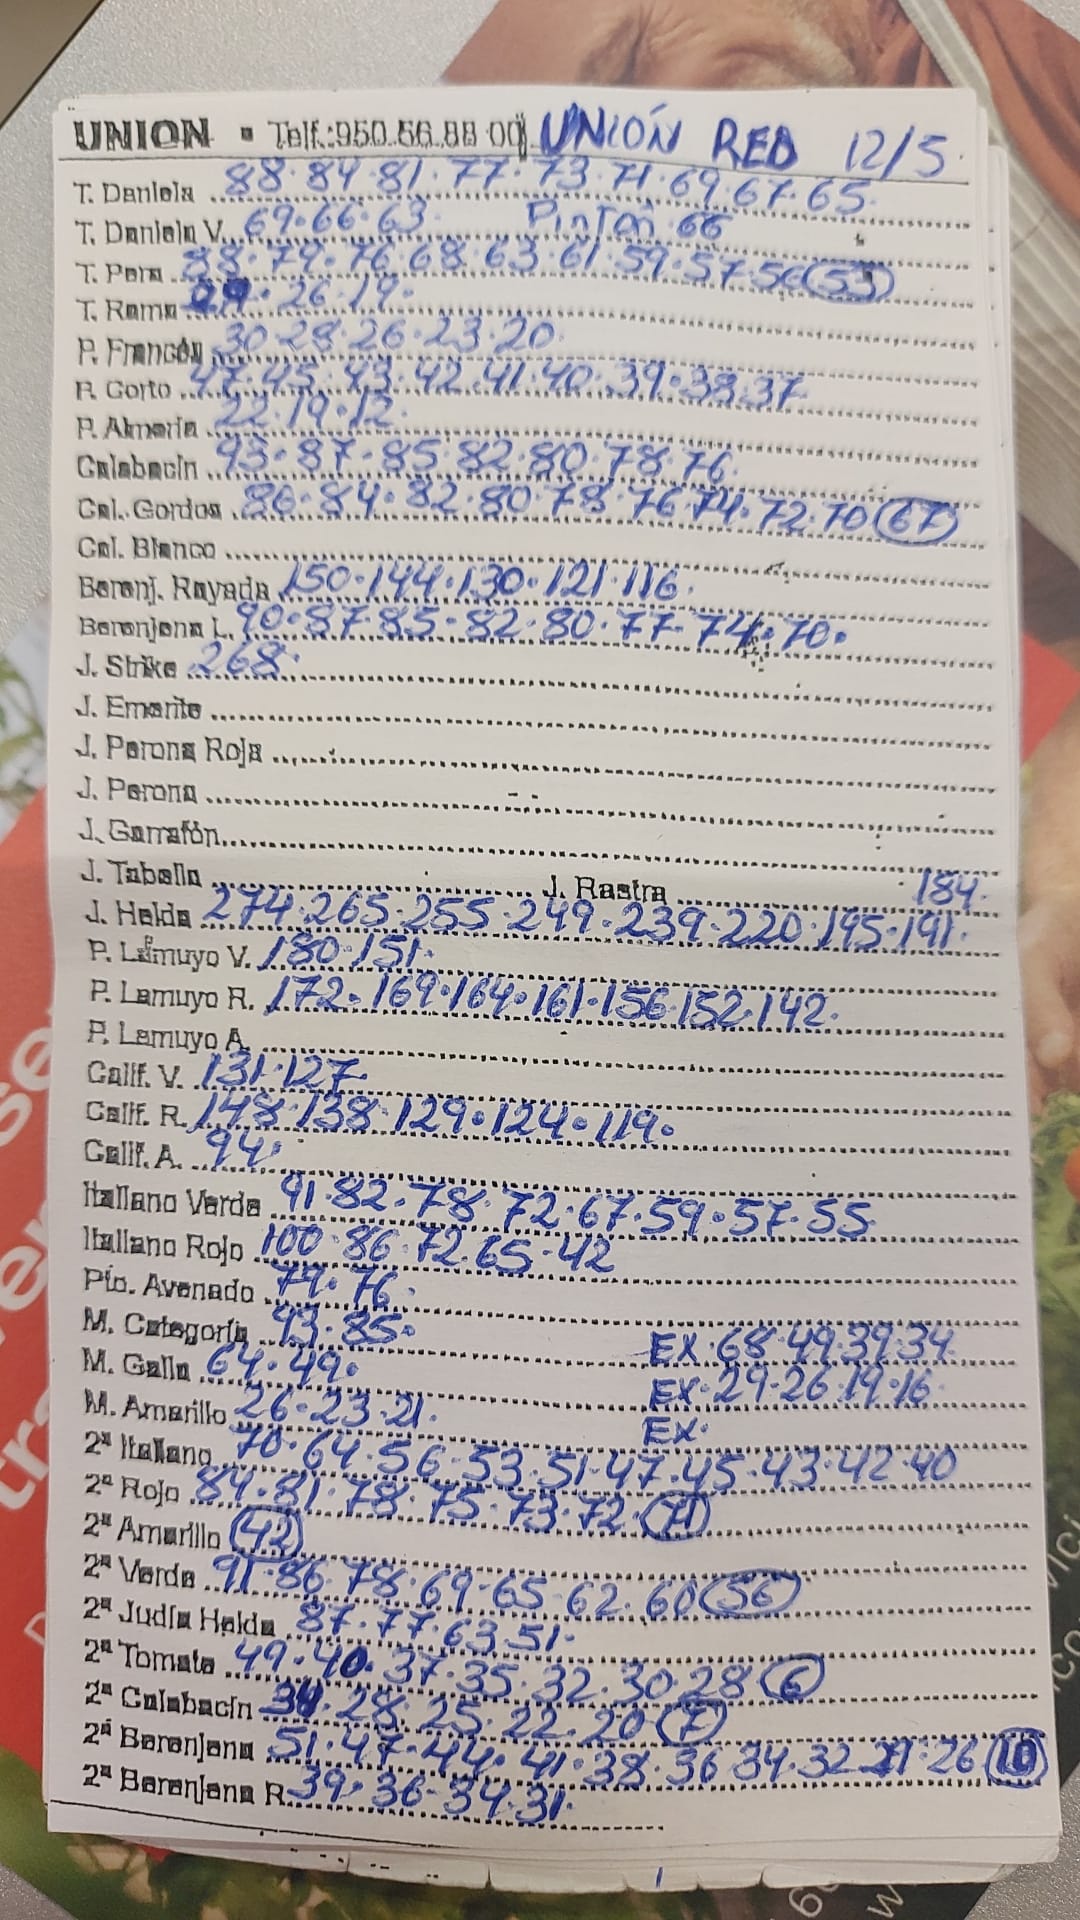 UNION • Telf.:950.56.88 00 UNIÓN RED 12/5.
T. Daniela 88·84·81·77·73·71·69·67·65.
T. Daniela V. 69·66·63. Pinton 66
T. Pera 88·79·76·68·63·61·59·57·56 (53)
T. Rama 29·26·19.
P. Francés 30·28·26·23·20.
P. Corto 47·45·43·42·41·40·39·38·37.
P. Almería 22·19·12.
Calabacín 93·87·85·82·80·78·76.
Cal. Gordos 86·84·82·80·78·76·74·72·70 (67)
Cal. Blanco
Berenj. Rayada 150·144·130·121·116.
Berenjena L. 90·87·85·82·80·77·74·70.
J. Strike 268.
J. Emerite
J. Perona Roja
J. Perona
J. Garrafón
J. Tabella J. Rastra 184.
J. Helda 274·265·255·249·239·220·195·191.
P. Lamuyo V. 180·151.
P. Lamuyo R. 172·169·164·161·156·152·142.
P. Lamuyo A.
Calif. V. 131·127.
Calif. R. 148·138·129·124·119.
Calif. A. 94.
Italiano Verde 91·82·78·72·67·59·57·55.
Italiano Rojo 100·86·72·65·42
Pto. Avenado 79·76.
M. Categoría 93·85. EX·68·49·39·34.
M. Galia 64·49. EX·29·26·19·16.
M. Amarillo 26·23·21. EX.
2ª Italiano 70·64·56·53·51·47·45·43·42·40
2ª Rojo 84·81·78·75·73·72 (71)
2ª Amarillo (42)
2ª Verde 91·86·78·69·65·62·60 (56)
2ª Judía Helda 87·77·63·51.
2ª Tomate 49·40·37·35·32·30·28 (6)
2ª Calabacín 28·25·22·20 (7)
2ª Berenjena 51·47·44·41·38·36·34·32 26 (10)
2ª Berenjena R. 39·36·34·31.